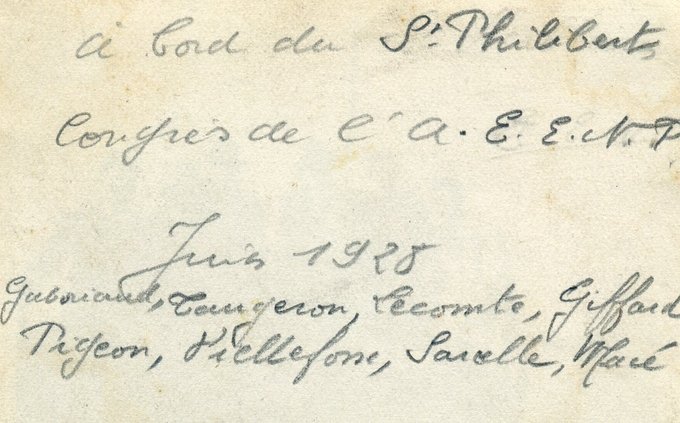 à bord du St Philibert,
Congrès de l'A.E.E.N.P
Juin 1928
Gaboriaud, Taugeron, Lecomte, Giffard
Pigeon, Viellefosse, Sarelle, Macé